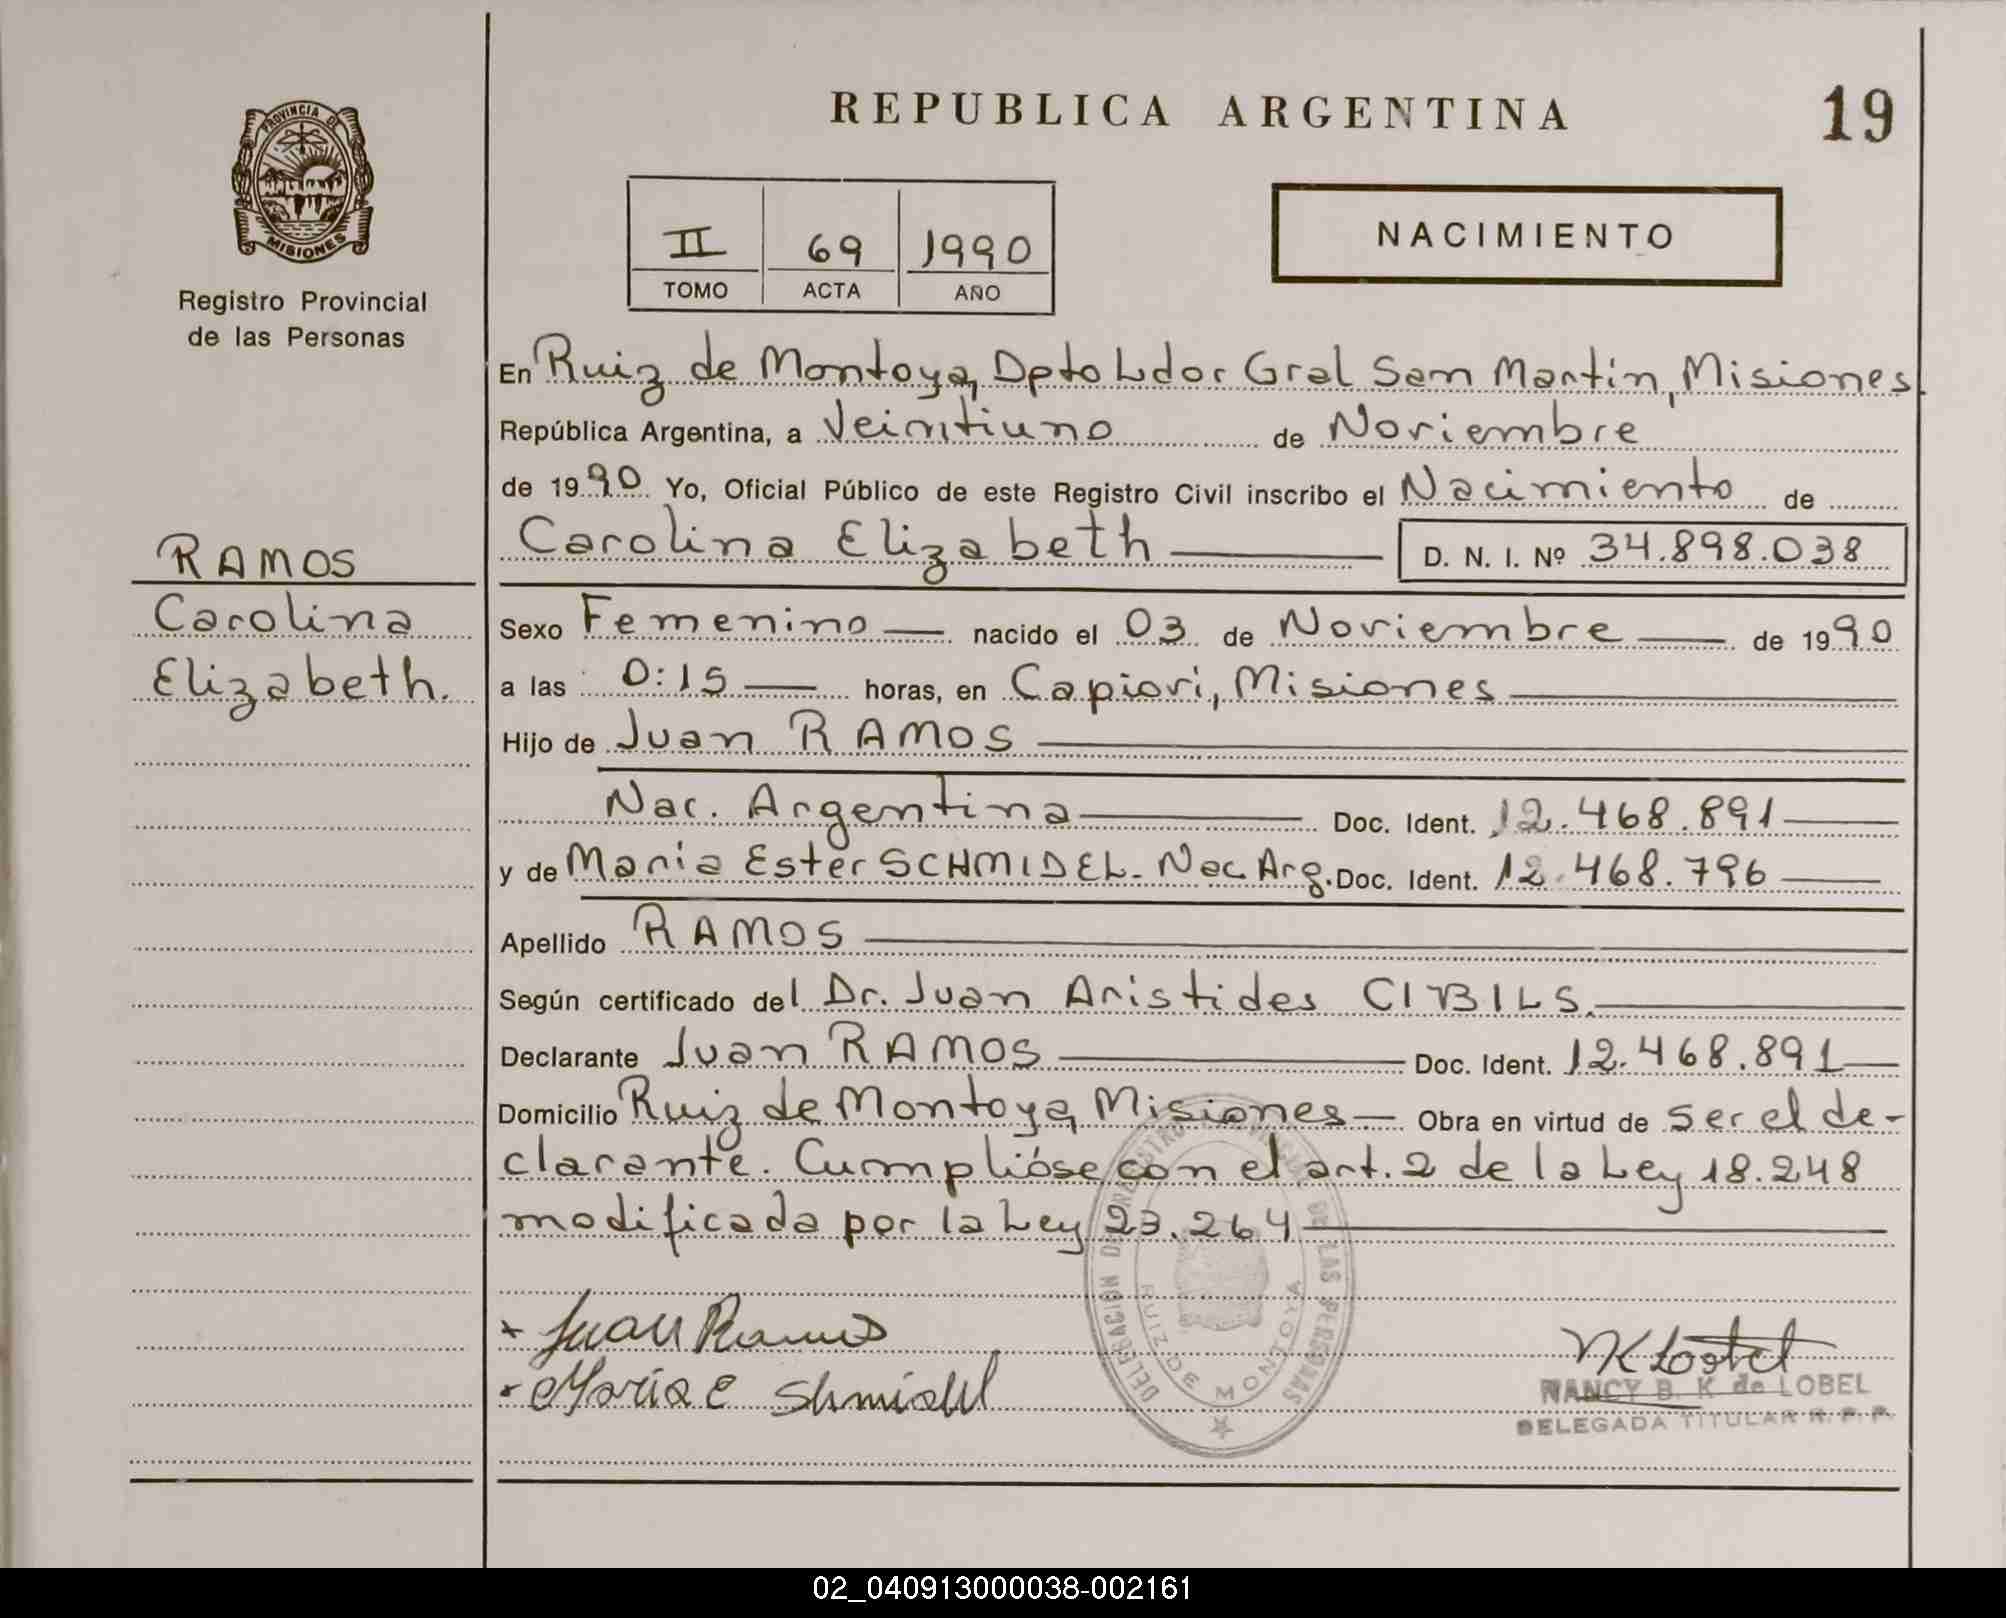 REPUBLICA ARGENTINA
19
PROVINCIA DE
MISIONES
Registro Provincial
de las Personas
II 69 1990
TOMO ACTA AÑO
NACIMIENTO
En Ruiz de Montoya, Dpto Ldor Gral San Martín, Misiones
República Argentina, a Veintiuno de Noviembre
de 1990 Yo, Oficial Público de este Registro Civil inscribo el Nacimiento de
Carolina Elizabeth D. N. I. Nº 34.898.038
RAMOS
Carolina
Elizabeth.
Sexo Femenino nacido el 03 de Noviembre de 1990
a las 0:15 horas, en Capiovi, Misiones
Hijo de Juan RAMOS
Nac. Argentina Doc. Ident. 12.468.891
y de Maria Ester SCHMIDEL. Nac Arg. Doc. Ident. 12.468.796
Apellido RAMOS
Según certificado del Dr. Juan Aristides CIBILS.
Declarante Juan RAMOS Doc. Ident. 12.468.891
Domicilio Ruiz de Montoya, Misiones Obra en virtud de ser el de-
clarante. Cumplióse con el art. 2 de la Ley 18.248
modificada por la Ley 23.264
DELEGACION DE LAS PERSONAS
RUIZ DE MONTOYA
Juan Ramos
Maria E Shmidel
NANCY B. K de LOBEL
DELEGADA TITULAR R. P. P.
02_040913000038-002161